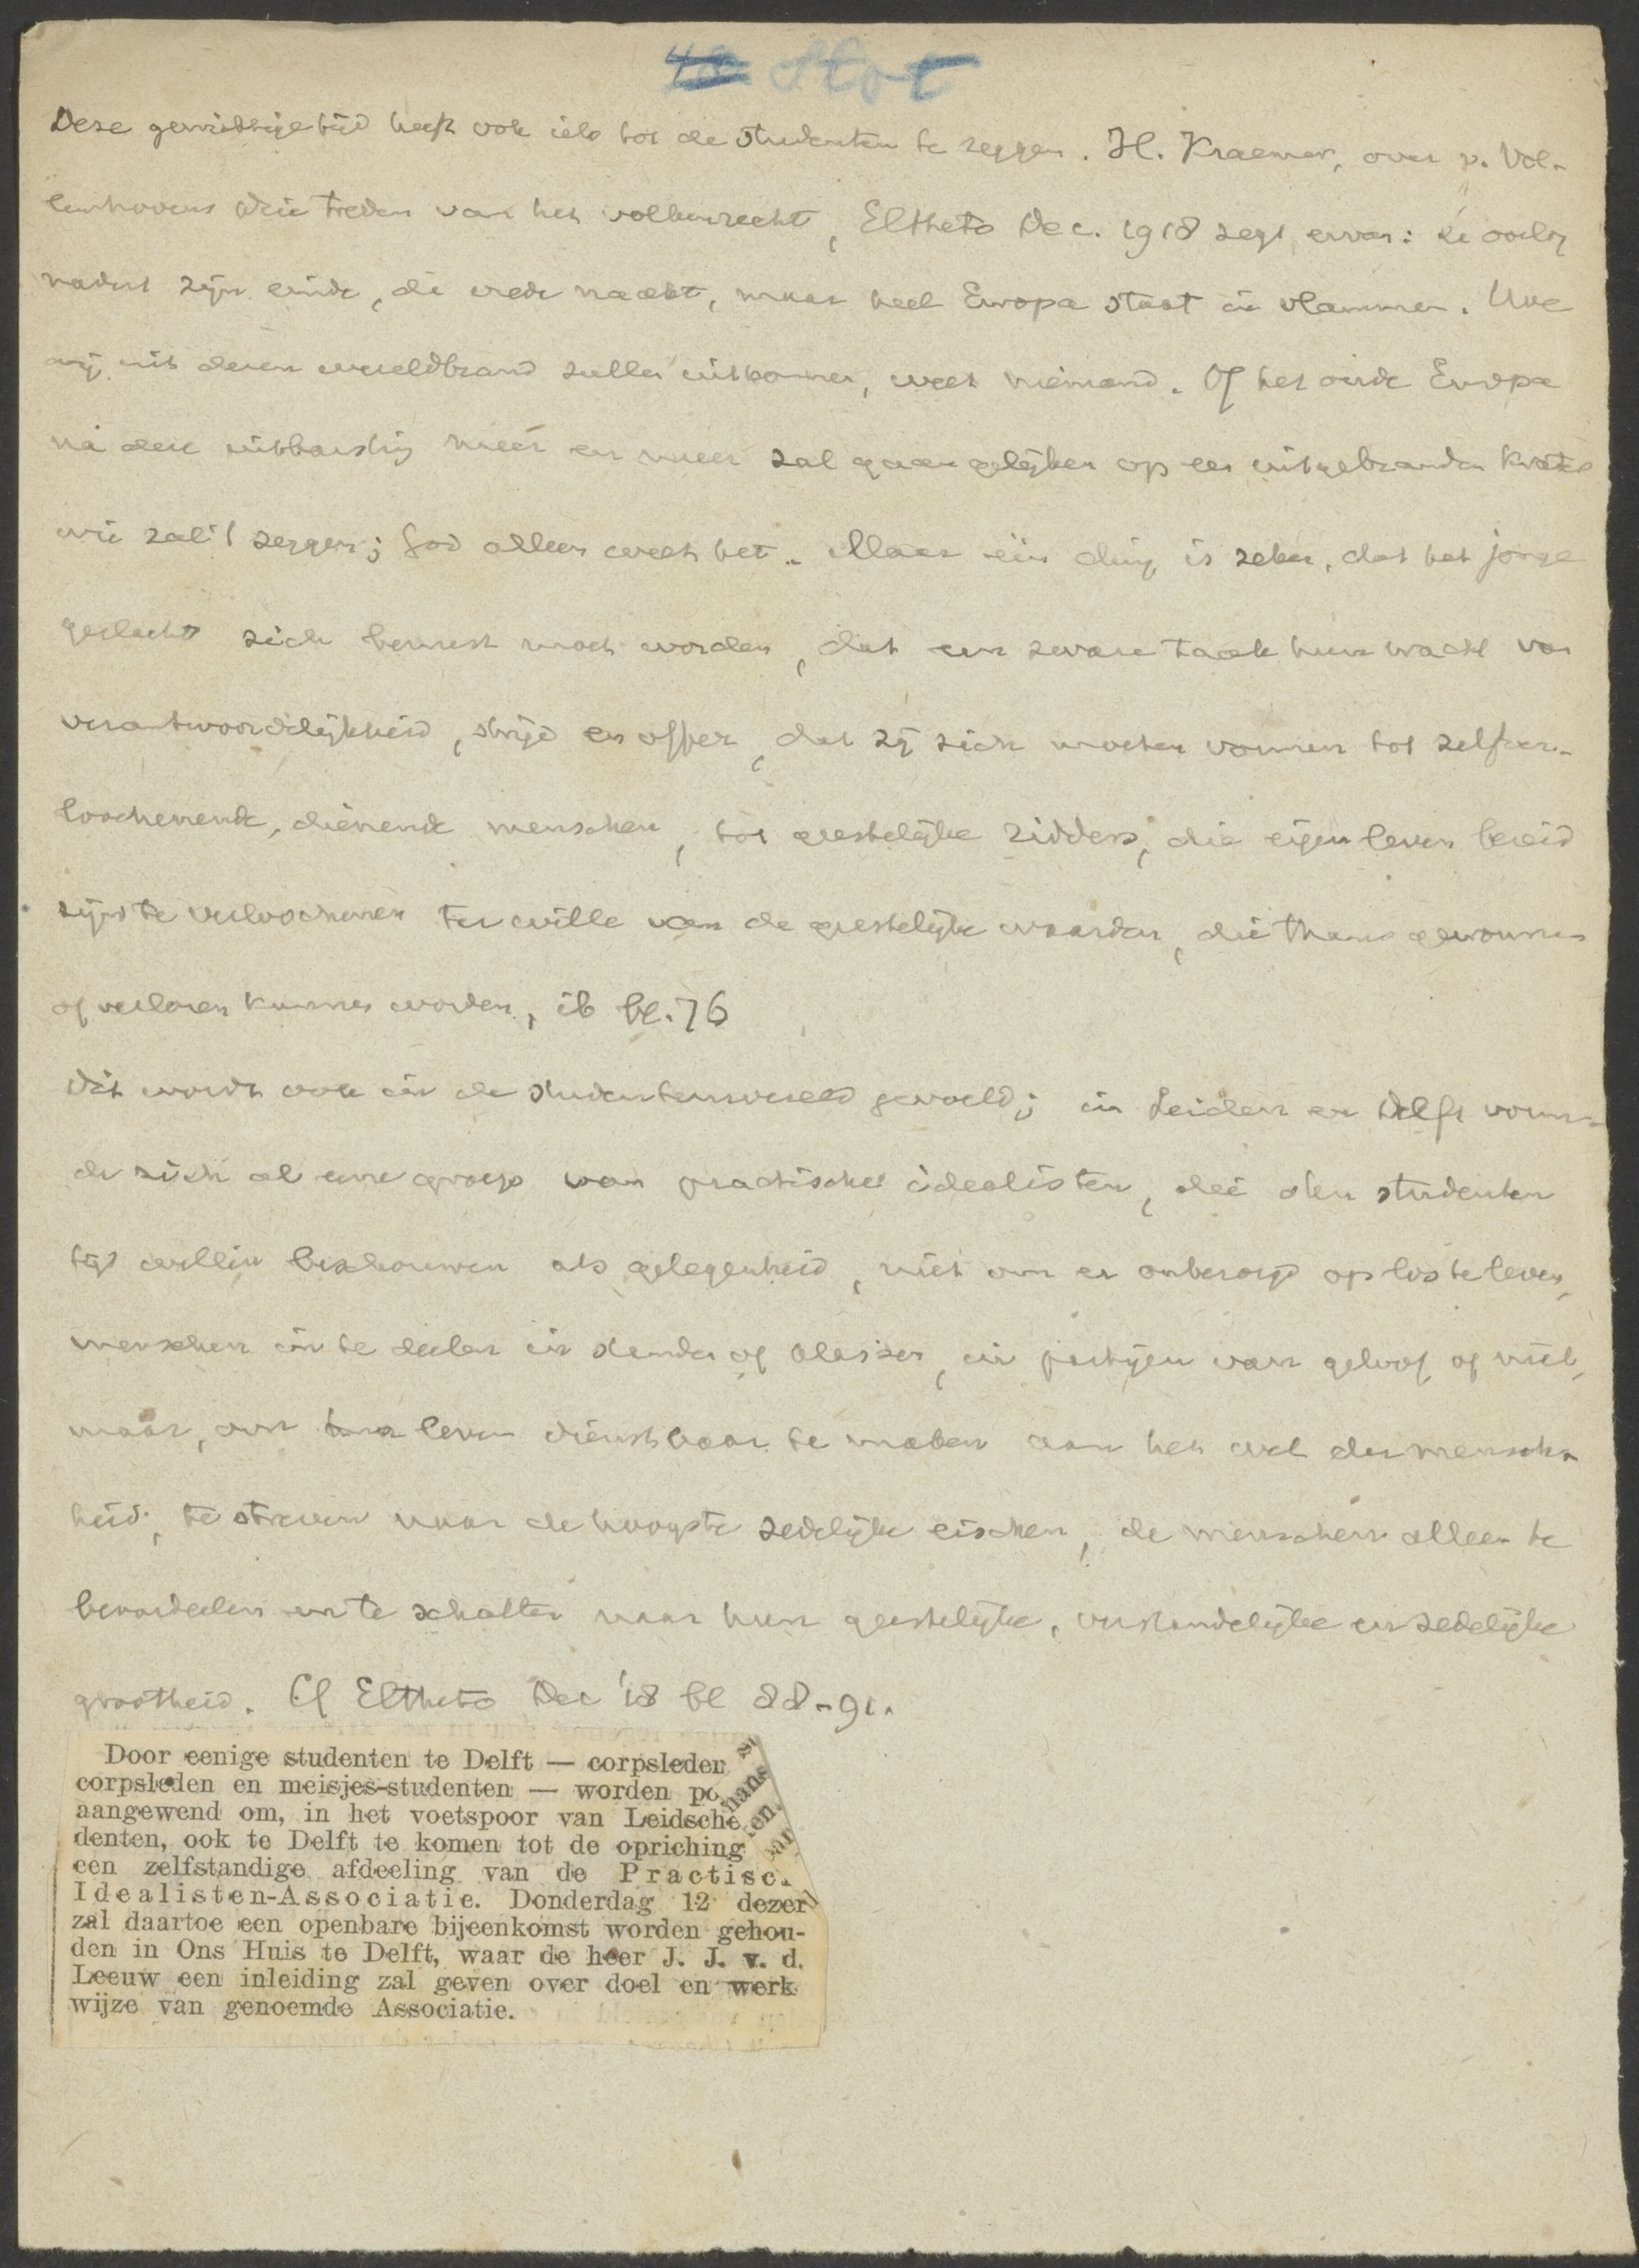 Slot
Deze gewichtige tijd heeft ook iets tot de studenten te zeggen. H. Kraemer, over v. Vol-
lenhovens drie treden van het volkenrecht, Eltheto Dec. 1918 zegt ervan: de oorlog
nadert zijn einde, de vrede naakt, maar heel Europa staat in vlammen. Hoe
wij uit dezen wereldbrand zullen uitkomen, weet niemand. Of het oude Europa
na deze uitbarsting meer en meer zal gaan gelijken op een uitgebranden krater
wie zal 't zeggen; God alleen weet het. Maar één ding is zeker, dat het jonge
geslacht zich bewust moet worden, dat een zware taak hun wacht van
verantwoordelijkheid, strijd en offer, dat zij zich moeten vormen tot zelfver-
loochenende, dienende menschen, tot geestelijke ridders, die eigen leven bereid
zijn te verloochenen ter wille van de geestelijke waarden, die thans gewonnen
of verloren kunnen worden, ib bl. 76
Dit wordt ook in de studentenwereld gevoeld; in Leiden en Delft vorm-
de zich al eene groep van practische idealisten, die den studenten
tijd willen beschouwen als gelegenheid, niet om er onbezorgd op los te leven,
menschen in te deelen in standen of klassen, in partijen van geloof of niet,
maar, om hun leven dienstbaar te maken aan het wel der mensch-
heid, te streven naar de hoogste zedelijke eischen, de menschen alleen te
beoordeelen en te schatten naar hun geestelijke, verstandelijke en zedelijke
grootheid. Cf Eltheto Dec '18 bl 88-91.
Door eenige studenten te Delft — corpsleden
corpsleden en meisjes-studenten — worden po
aangewend om, in het voetspoor van Leidsche
denten, ook te Delft te komen tot de opriching
een zelfstandige afdeeling van de Practisc
Idealisten-Associatie. Donderdag 12 dezer
zal daartoe een openbare bijeenkomst worden gehou-
den in Ons Huis te Delft, waar de heer J. J. v. d.
Leeuw een inleiding zal geven over doel en werk
wijze van genoemde Associatie.